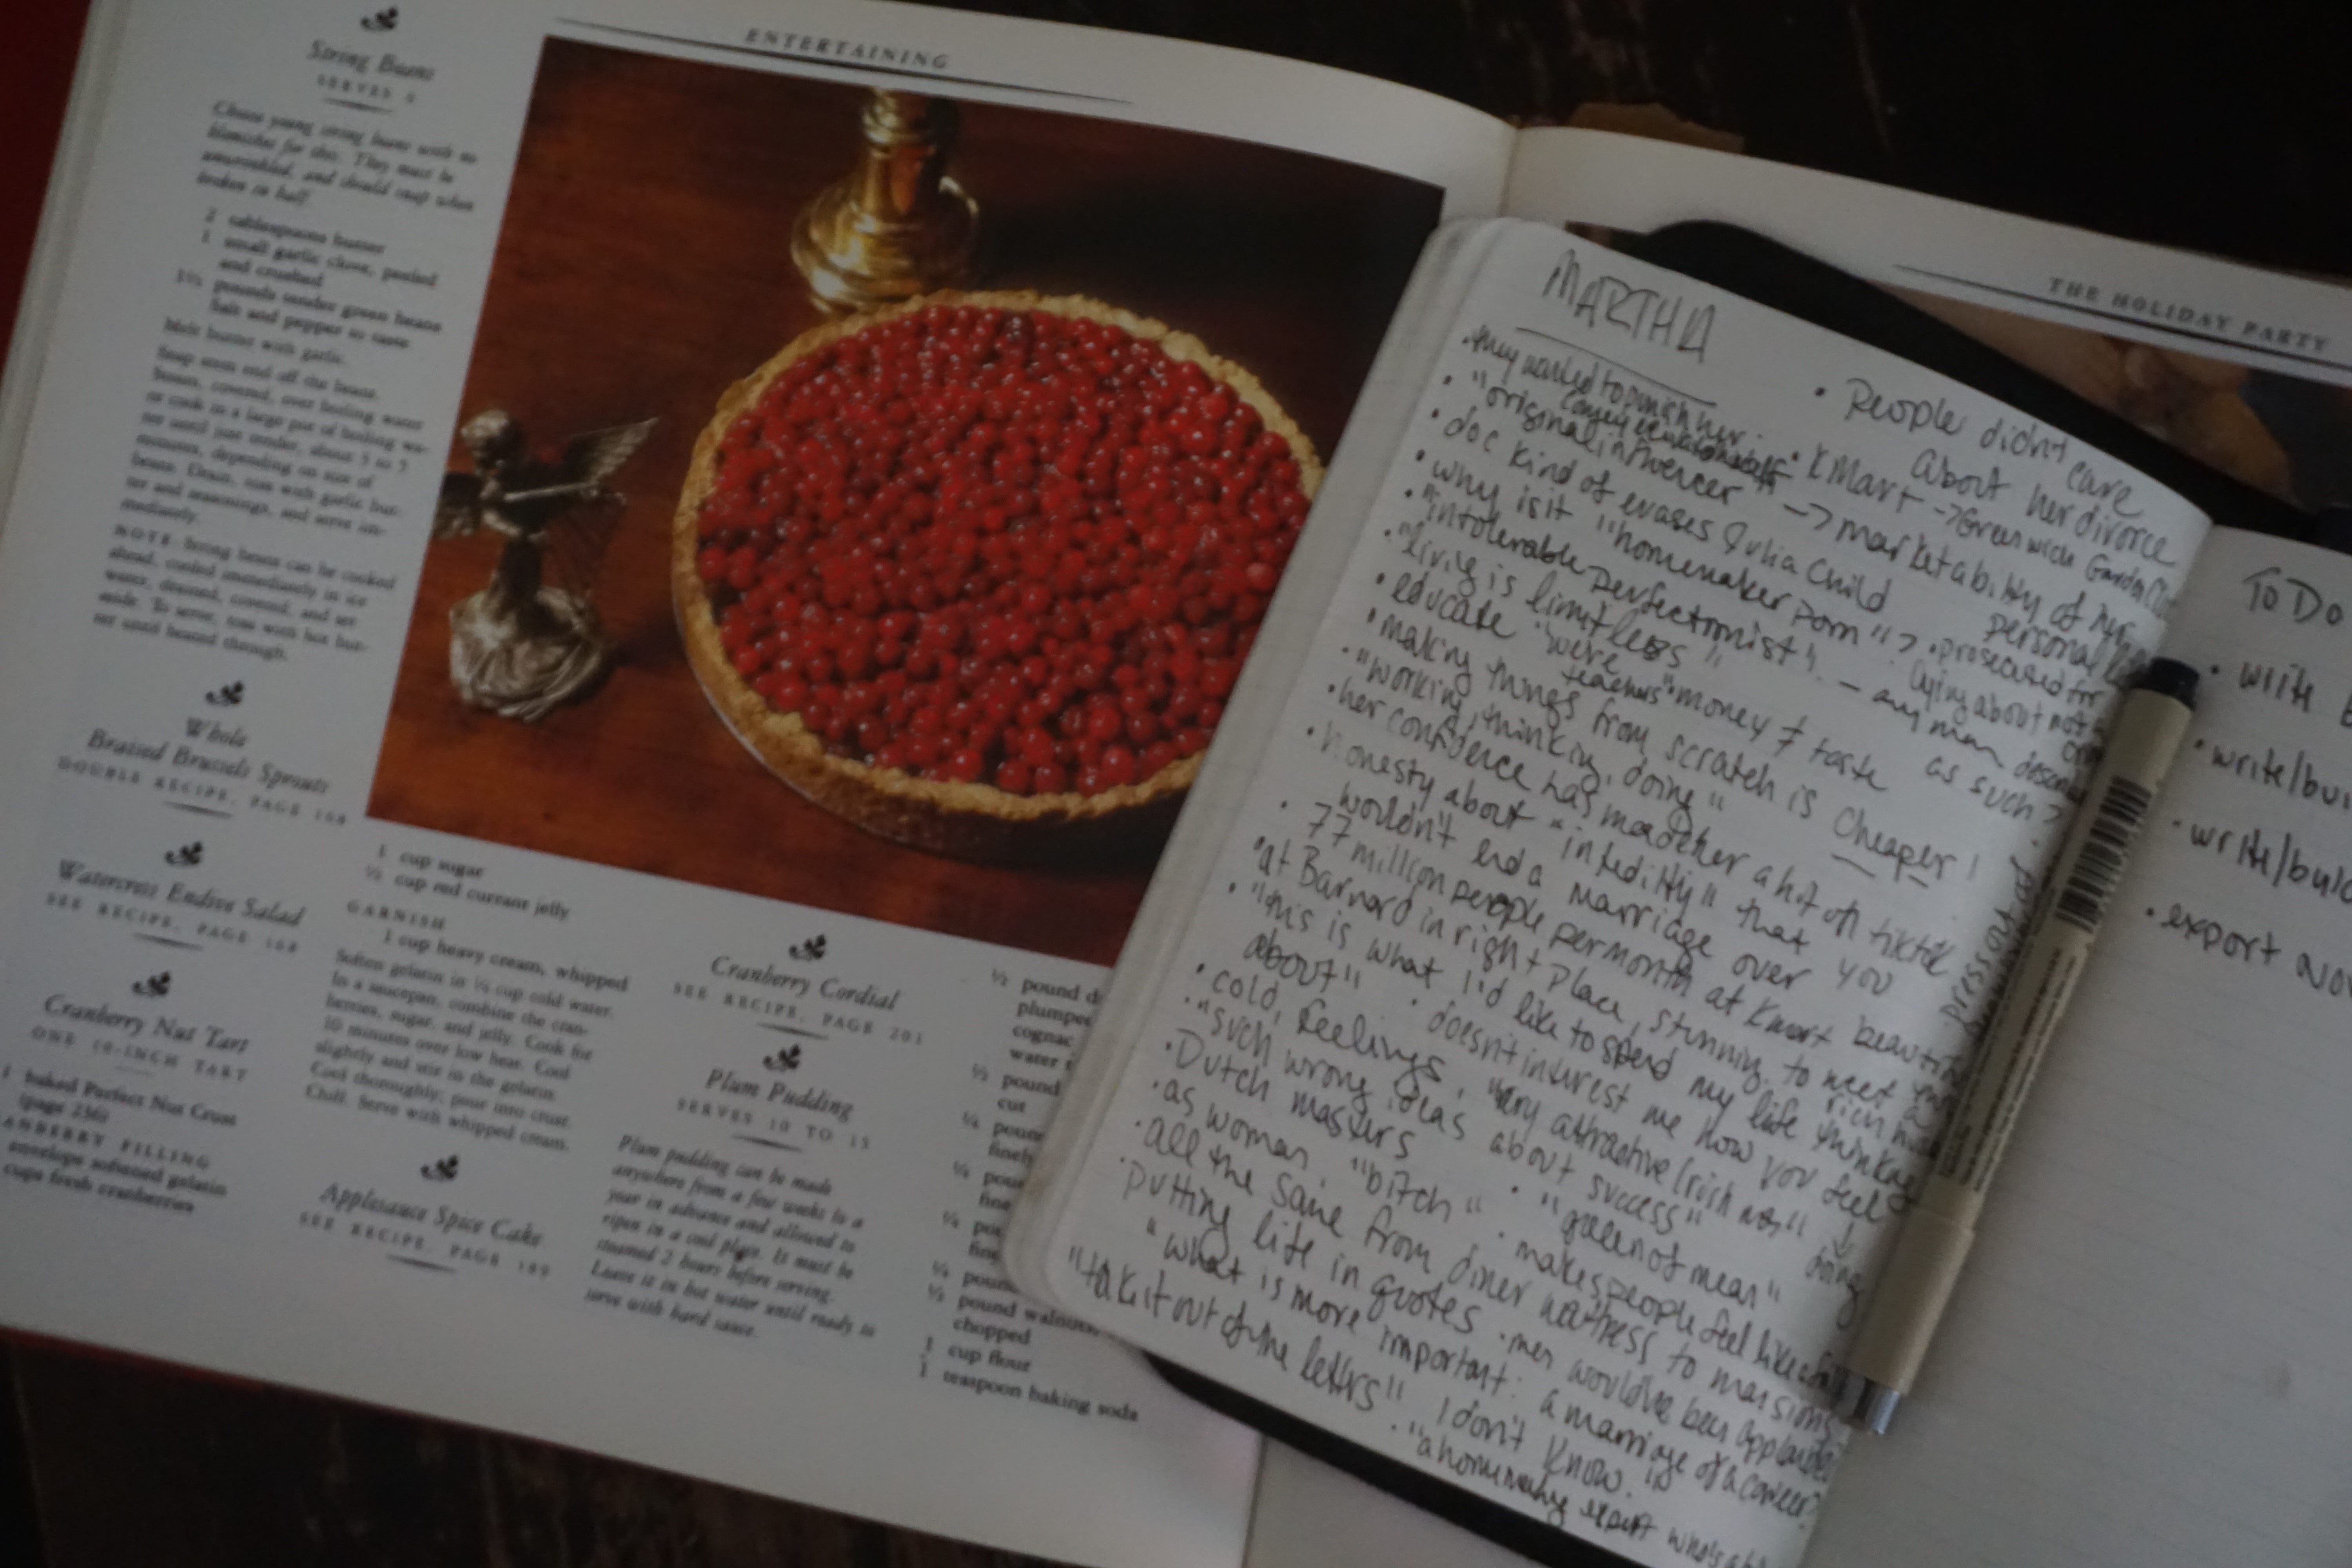 ENTERTAINING
String Beans
SERVES
Choose young string beans with no
blemishes for this. They must be
and should snap when
broken in half.
2 tablespoons butter
1 small garlic clove, peeled
and crushed
1½ pounds tender green beans
Salt and pepper to taste
Melt butter with garlic.
Snap stem end off the beans.
Steam, covered, over boiling water
or cook in a large pot of boiling wa-
ter until just tender, about 5 to 7
minutes, depending on size of
beans. Drain, toss with garlic but-
ter and seasonings, and serve im-
mediately.
NOTE: String beans can be cooked
ahead, cooled immediately in ice
water, drained, covered, and set
aside. To serve, toss with hot but-
ter until heated through.
Whole
Braised Brussels Sprouts
DOUBLE RECIPE, PAGE 168
Watercress Endive Salad
SEE RECIPE, PAGE 168
Cranberry Nut Tart
ONE 10-INCH TART
1 baked Perfect Nut Crust
(page 236)
ANBERRY FILLING
envelope softened gelatin
cups fresh cranberries
1 cup sugar
½ cup red currant jelly
GARNISH
1 cup heavy cream, whipped
Soften gelatin in ¼ cup cold water.
In a saucepan, combine the cran-
berries, sugar, and jelly. Cook for
10 minutes over low heat. Cool
slightly and stir in the gelatin.
Cool thoroughly; pour into crust.
Chill. Serve with whipped cream.
Applesauce Spice Cake
SEE RECIPE, PAGE 189
Cranberry Cordial
SEE RECIPE, PAGE 201
Plum Pudding
SERVES 10 TO 15
Plum pudding can be made
anywhere from a few weeks to a
year in advance and allowed to
ripen in a cool place. It must be
steamed 2 hours before serving.
Leave it in hot water until ready to
serve with hard sauce.
½ pound d
plumped
cognac
water
½ pound
cut
¼ poun
finely
¼ pou
fine
¼ pou
fine
¼ poun
½ pound walnuts
chopped
1 cup flour
1 teaspoon baking soda
THE HOLIDAY PARTY
MARTHA
• they wanted to punish her.
• "original influencer" → marketability of her personal
• doc kind of evases Julia Child
• why is it "homemaker porn"?
• "intolerable perfectionist". – any man described as such?
• "living is limitless"
• educate "we're teachers" • money ≠ taste
• making things from scratch is cheaper!
• "working, thinking, doing"
• her confidence has made her a hit on tiktok
• honesty about "infedility" that you
wouldn't end a marriage over
• 77 million people per month at Kmart
• at Barnard in right place, stunning, to meet rich
• "this is what I'd like to spend my life thinking
about" • doesn't interest me how you feel
• cold, feelings, very attractive
• "such wrong ideas about success" ↓ doing
• Dutch masters • "queen of mean"
• as woman "bitch" • makes people feel like
• all the same from diner waitress to mansions
• putting life in quotes • men would've been applauded
"what is more important: a marriage or a career?
"take it out of the letters" I don't know.
• People didn't care
about her divorce
• KMart → Greenwich Garden
• prosecuted for
lying about not a
TO DO
• write
• write/bui
• write/build
• export nov